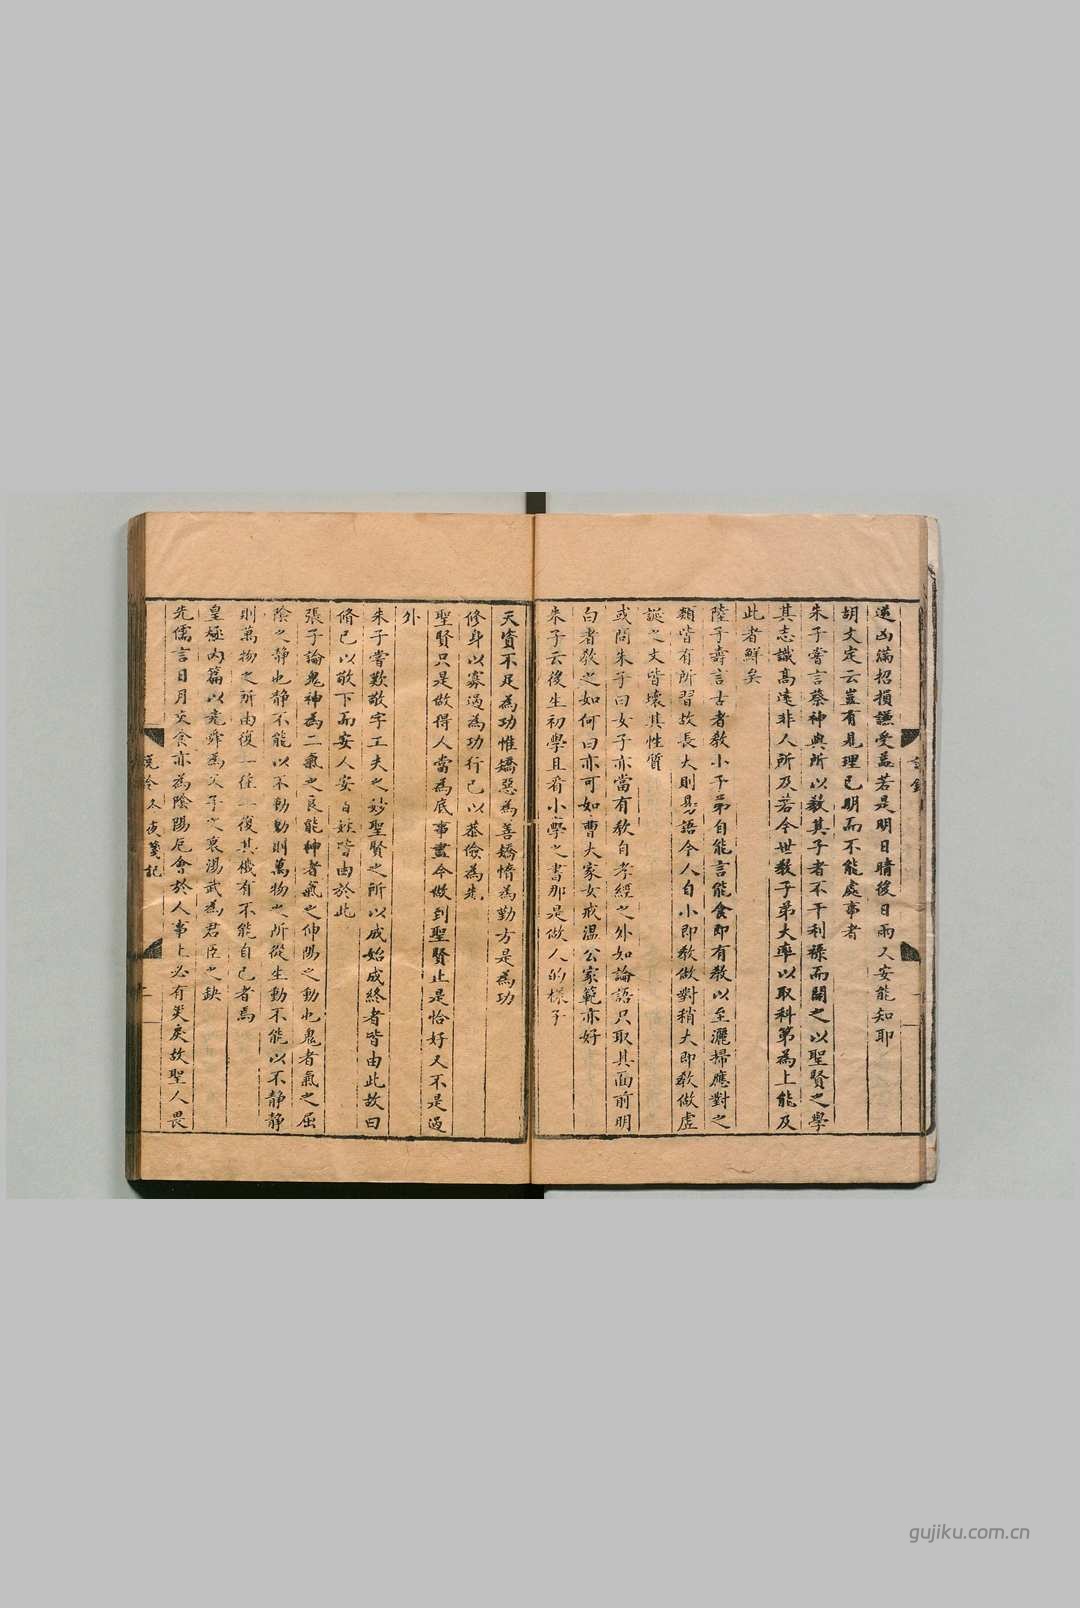 逆凶滿招損謙受益若是明日晴後日雨又安能知耶
胡文定云豈有見理已明而不能處事者
朱子嘗言蔡神與所以教其子者不干利祿而開之以聖賢之學
其志識高遠非人所及若今世教子弟大率以取科第為上能及
此者鮮矣
陸子壽言古者教小子弟自能言能食即有教以至灑掃應對之
類皆有所習故長大則易語今人自小即教做對稍大即教做虛
誕之文皆壞其性質
或問朱子曰女子亦當有教自孝經之外如論語只取其面前明
白者教之如何曰亦可如曹大家女戒溫公家範亦好
朱子云後生初學且看小學之書那是做人的樣子
天資不足為功惟矯惡為善矯惰為勤方是為功
修身以寡過為功行己以恭儉為先
聖賢只是做得人當為底事盡今做到聖賢止是恰好又不是過
外
朱子嘗歎敬字工夫之妙聖賢之所以成始成終者皆由此故曰
脩己以敬下而安人安百姓皆由於此
張子論鬼神為二氣之良能神者氣之伸陽之動也鬼者氣之屈
陰之靜也靜不能以不動動則萬物之所從生動不能以不靜靜
則萬物之所由復一往一復其機有不能自已者焉
皇極內篇以堯舜為父子之衰湯武為君臣之缺
先儒言日月交食亦為陰陽厄會於人事上必有災戾故聖人畏
冬夜箋記
gujiku.com.cn